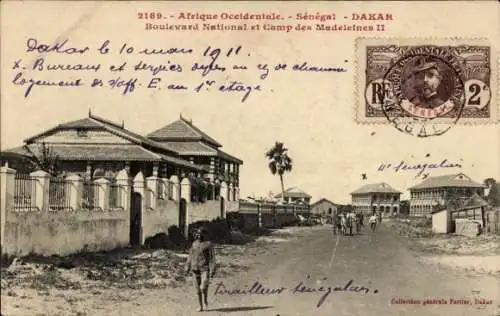 2189. - Afrique Occidentale. - Sénégal - DAKAR
Boulevard National et Camp des Madeleines II
Dakar le 10 mars 1911
x Bureaux et service
en rez de chaussée
logement des off. E. au 1er étage
RF 2
SÉNÉGAL
Sénégalais
x
tirailleur sénégalais
Collection générale Fortier, Dakar